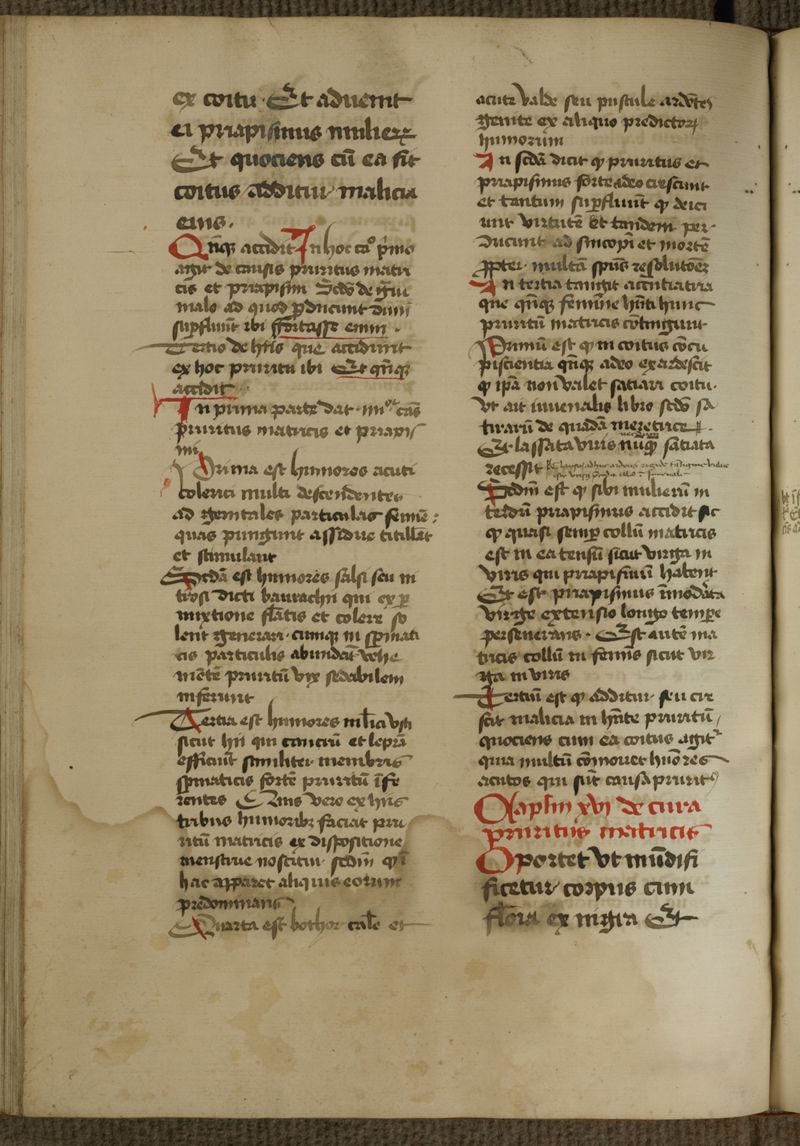 ex coitu · Et aduenit
ei priapismus mulierꝝ
Et quociens cū ea fit
coitus additur malicia
eius ·
Qnqꝫ accidit In hoc ca° p̄mo
agit de causis pruritus matri
cis et priapism Scdo de
malo ad quod ꝑducunt dum
suꝑfluūt ibi fortasse enim ·
Tertio de hiis que accidunt
ex hoc pruritu ibi Et qn̄qꝫ
accidit
In prima parte dat · iiii°ʳ cās
pruritus matricis et priapis
mi
Prima est humores acuti
colerici multi descendentes
ad genitales particulas femīe
quas pungunt assidue titillāt
et stimulant
Scdā est humores salsi seu ni
trosi dicti baurachii qui ex ꝑ
mixtione flātis et colere so
lent generari · cumqꝫ in spmati
cis particulis abundāt vehe
mētē pruritū vix sedabilem
inferunt
Tertia est humores mlicia vsti
sicut hii qui cancrū et leprā
efficiūt similiter membris
spmaticis fortē pruritū īfe
rentes Quis vero ex hiis
tribus humoribꝫ faciat pru
ritū matricis ex dispositione
menstrue noscitur · scdm qd ī
hac apparet aliquis eorum
predominans
Quarta est bothor calē et
acute valde seu pustule ardētes
gēite ex aliquo predictoꝝ
humorum
In scdā dicit qꝫ pruritus et
priapismus forte adeo crescunt
et tantum suꝑfluūt qꝫ deici
unt virtutē Et tandem per-
ducunt ad sincopī et mortē
ꝓpter · multā spūs resolutōeꝫ
In tertia tangit accidentia
que qn̄qꝫ femine hn̄ti hunc
pruritū matricis cōtingunt
Primū est qꝫ in coitus cōcu
piscientia qn̄qꝫ adeo exardescit
qꝫ ip̄a non valet saciari coitu ·
Vt ait iuuenalis libro scdo sa
tirarū de quadā meretrice
Et lassata viris nūqꝫ saciata
recessit
Scdm est qꝫ sibi mulierū in
terdū priapismus accidit sic
qꝫ quasi semꝑ collū matricis
est in ea tensū sicut virga in
viris qui priapismū habent
Et est priapismus īmodāta
virge extensio longo tempe
perseuerans · Est autē ma
tricis collū in femīs sicut vir
ga in viris
Tertiū est qꝫ additur seu cre
scit malicia in hn̄te pruritū
quociens cum ea coitus agitʳ
quia multū cōmouet hūores
acutos qui sūt causa pruritꝰ
Caplm xvi de cura
pruritus matricis
Oportet vt mūdifi
ficetur corpus cum
flōia ex nigra Et